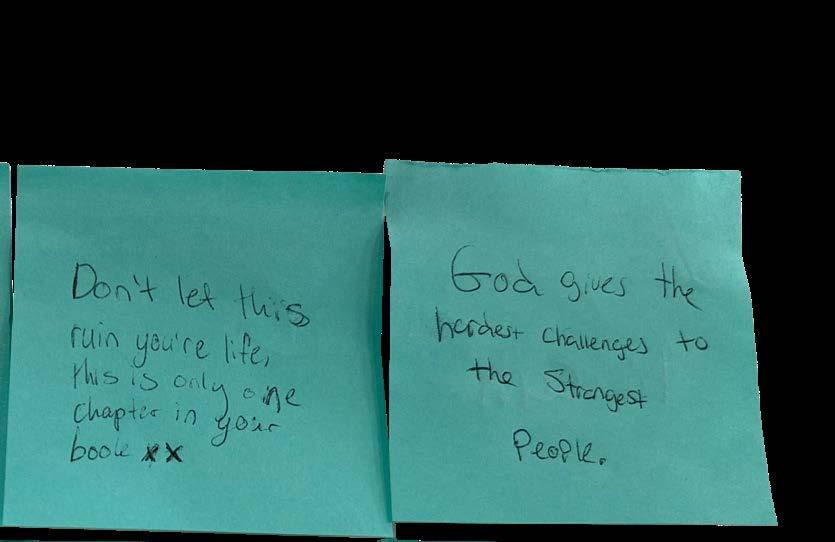 Don't let this
ruin you're life,
this is only one
chapter in your
book xx
God gives the
hardest challenges to
the Strongest
People.